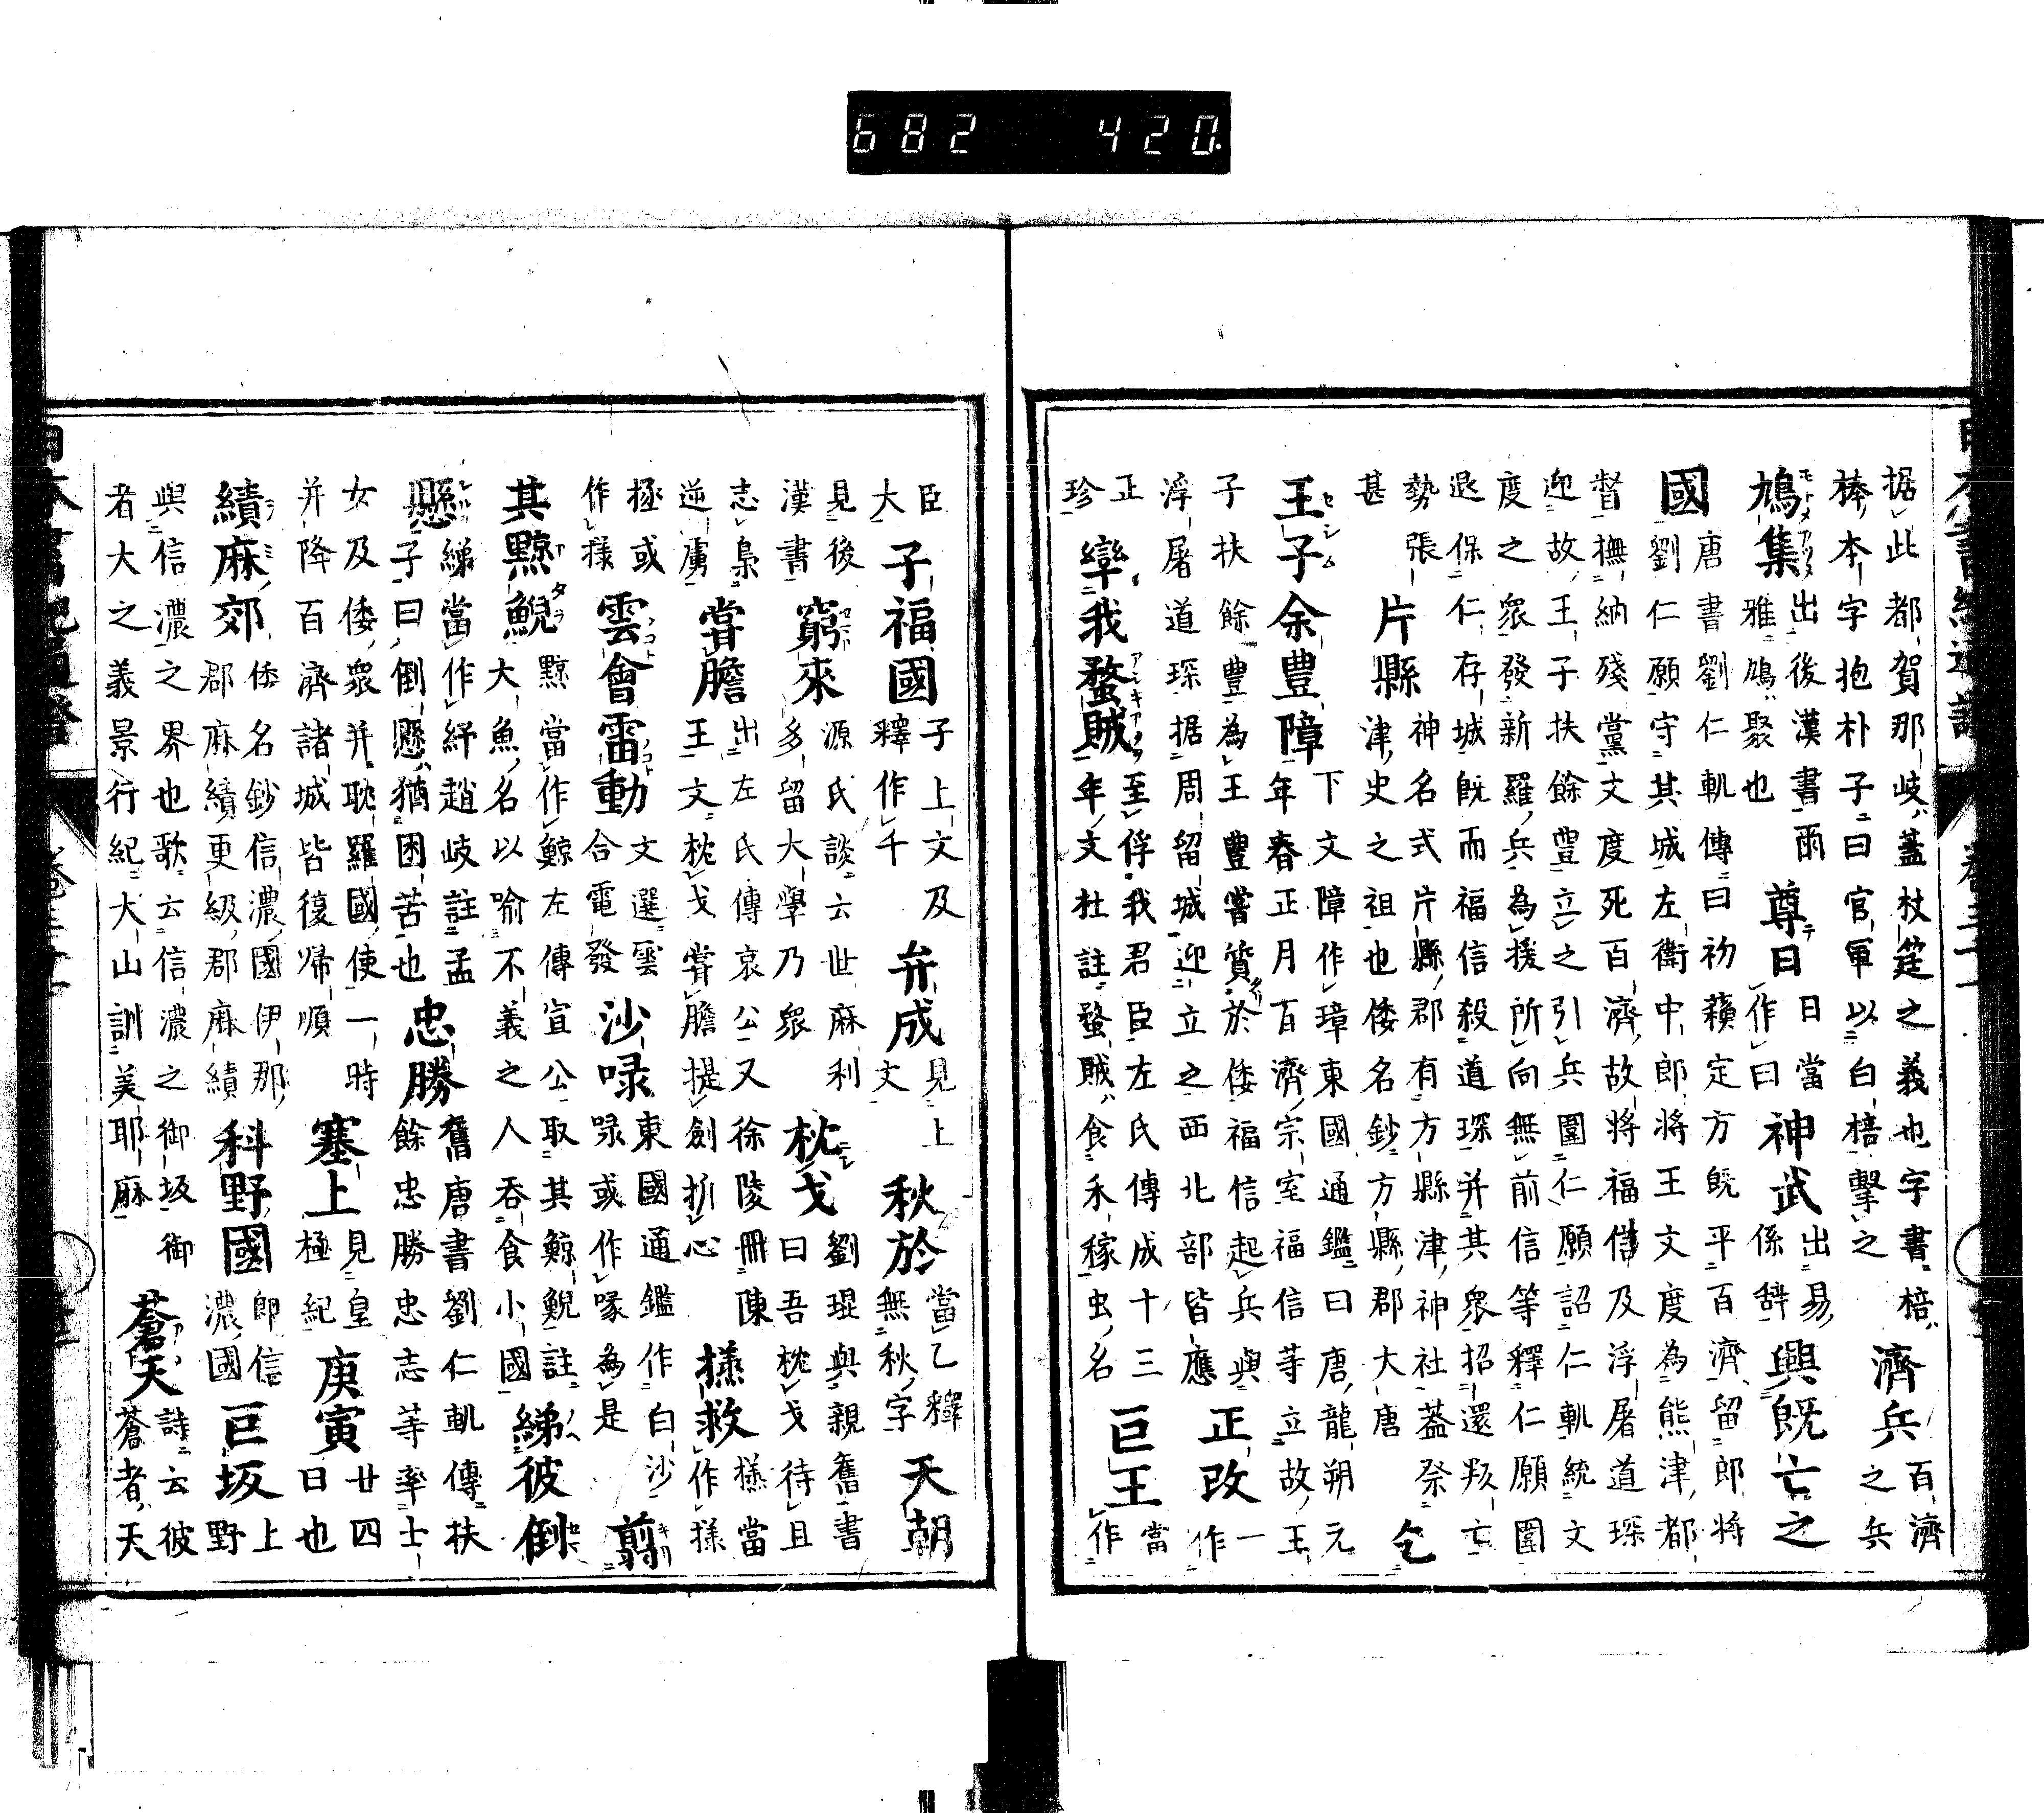 据此都賀那岐蓋杖筳之義也字書棓
棒本字抱朴子曰官軍以白棓擊之
濟兵
百濟
之兵
鳩集
出後漢書爾
雅鳩聚也
尊日
日當
作曰
神武
出易
係辞
興既亡之
國
唐書劉仁軌傳曰初蘓定方既平百濟留郎將
劉仁願守其城左衛中郎將王文度為熊津都
督撫納殘黨文度死百濟故將福信及浮屠道琛
迎故王子扶餘豊立之引兵圍仁願詔仁軌統文
度之衆發新羅兵為援所向無前信等釋仁願圍
退保仁存城既而福信殺道琛并其衆招還叛亡
勢張
甚
片縣
神名式片縣郡有方縣津神社蓋祭
津史之祖也倭名鈔方縣郡大唐
乞
王子余豊障
下文障作璋東國通鑑曰唐龍朔元
年春正月百濟宗室福信等立故王
子扶餘豊為王豊嘗質於倭福信起兵與
浮屠道琛据周留城迎立之西北部皆應
正改
一
作
正
珍
率我蝥賊
至俘我君臣左氏傳成十三
年文杜註蝥賊食禾稼虫名
巨王
當
作
臣
大
子福國
子上文及
釋作千
弁成
見上
文
秋於
當乙釋
無秋字
天朝
見後
漢書
窮來
源氏談云世麻利
多留大學乃衆
枕戈
劉琨與親舊書
曰吾枕戈待且
志梟
逆虜
嘗膽
出左氏傳哀公又徐陵冊陳
王文枕戈嘗膽提劍折心
㨾救
㨾當
作㨾
拯或
作㨾
雲會雷動
文選雲
合電發
沙㖨
東國通鑑作白沙
㖨或作喙為是
翦
其黥鯢
黥當作鯨左傳宣公取其鯨鯢註
大魚名以喻不義之人吞食小國
綈彼倒
懸
綈當作紓趙岐註孟
子曰倒懸猶困苦也
忠勝
舊唐書劉仁軌傳扶
餘忠勝忠志等率士
女及倭衆并耽羅國使一時
并降百濟諸城皆復歸順
塞上
見皇
極紀
庚寅
廿四
日也
續麻郊
倭名鈔信濃國伊那
郡麻績更級郡麻績
科野國
即信
濃國
巨坂
上
野
與信濃之界也歌云信濃之御坂御
者大之義景行紀大山訓美耶麻
蒼天
詩云彼
蒼者天
682 420